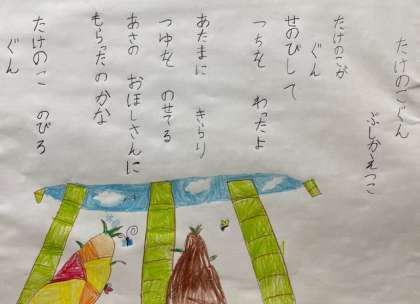 たけのこぐん
ぶしかえつこ
たけのこが
ぐん
せのびして
つちを わったよ
あたまに きらり
つゆを のせてる
あさの おほしさんに
もらったのかな
たけのこ のびろ
ぐん